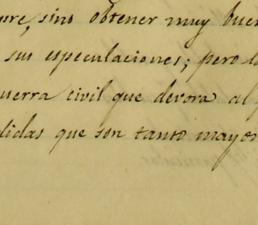 pre, sino obtener muy buen
sus especulaciones; pero l
uerra civil que devora al p
didas que son tanto mayor